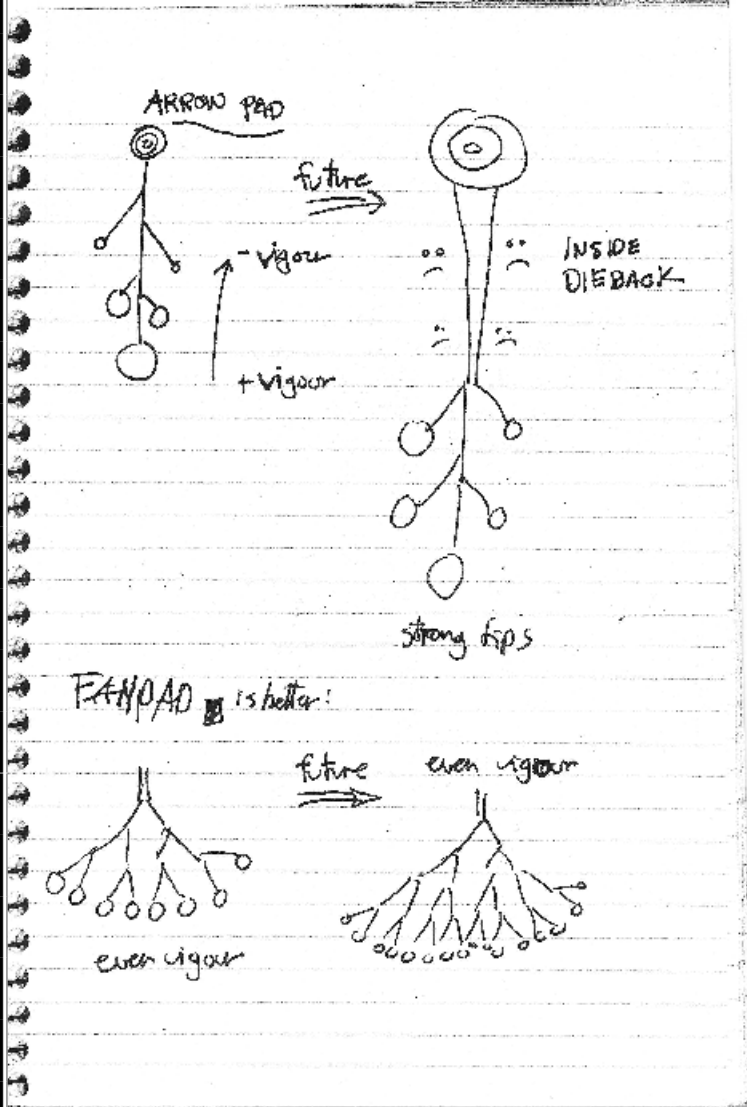 ARROW PAD
future
- vigour
+ vigour
INSIDE
DIEBACK
strong tips
FANPAD is better!
future
even vigour
even vigour